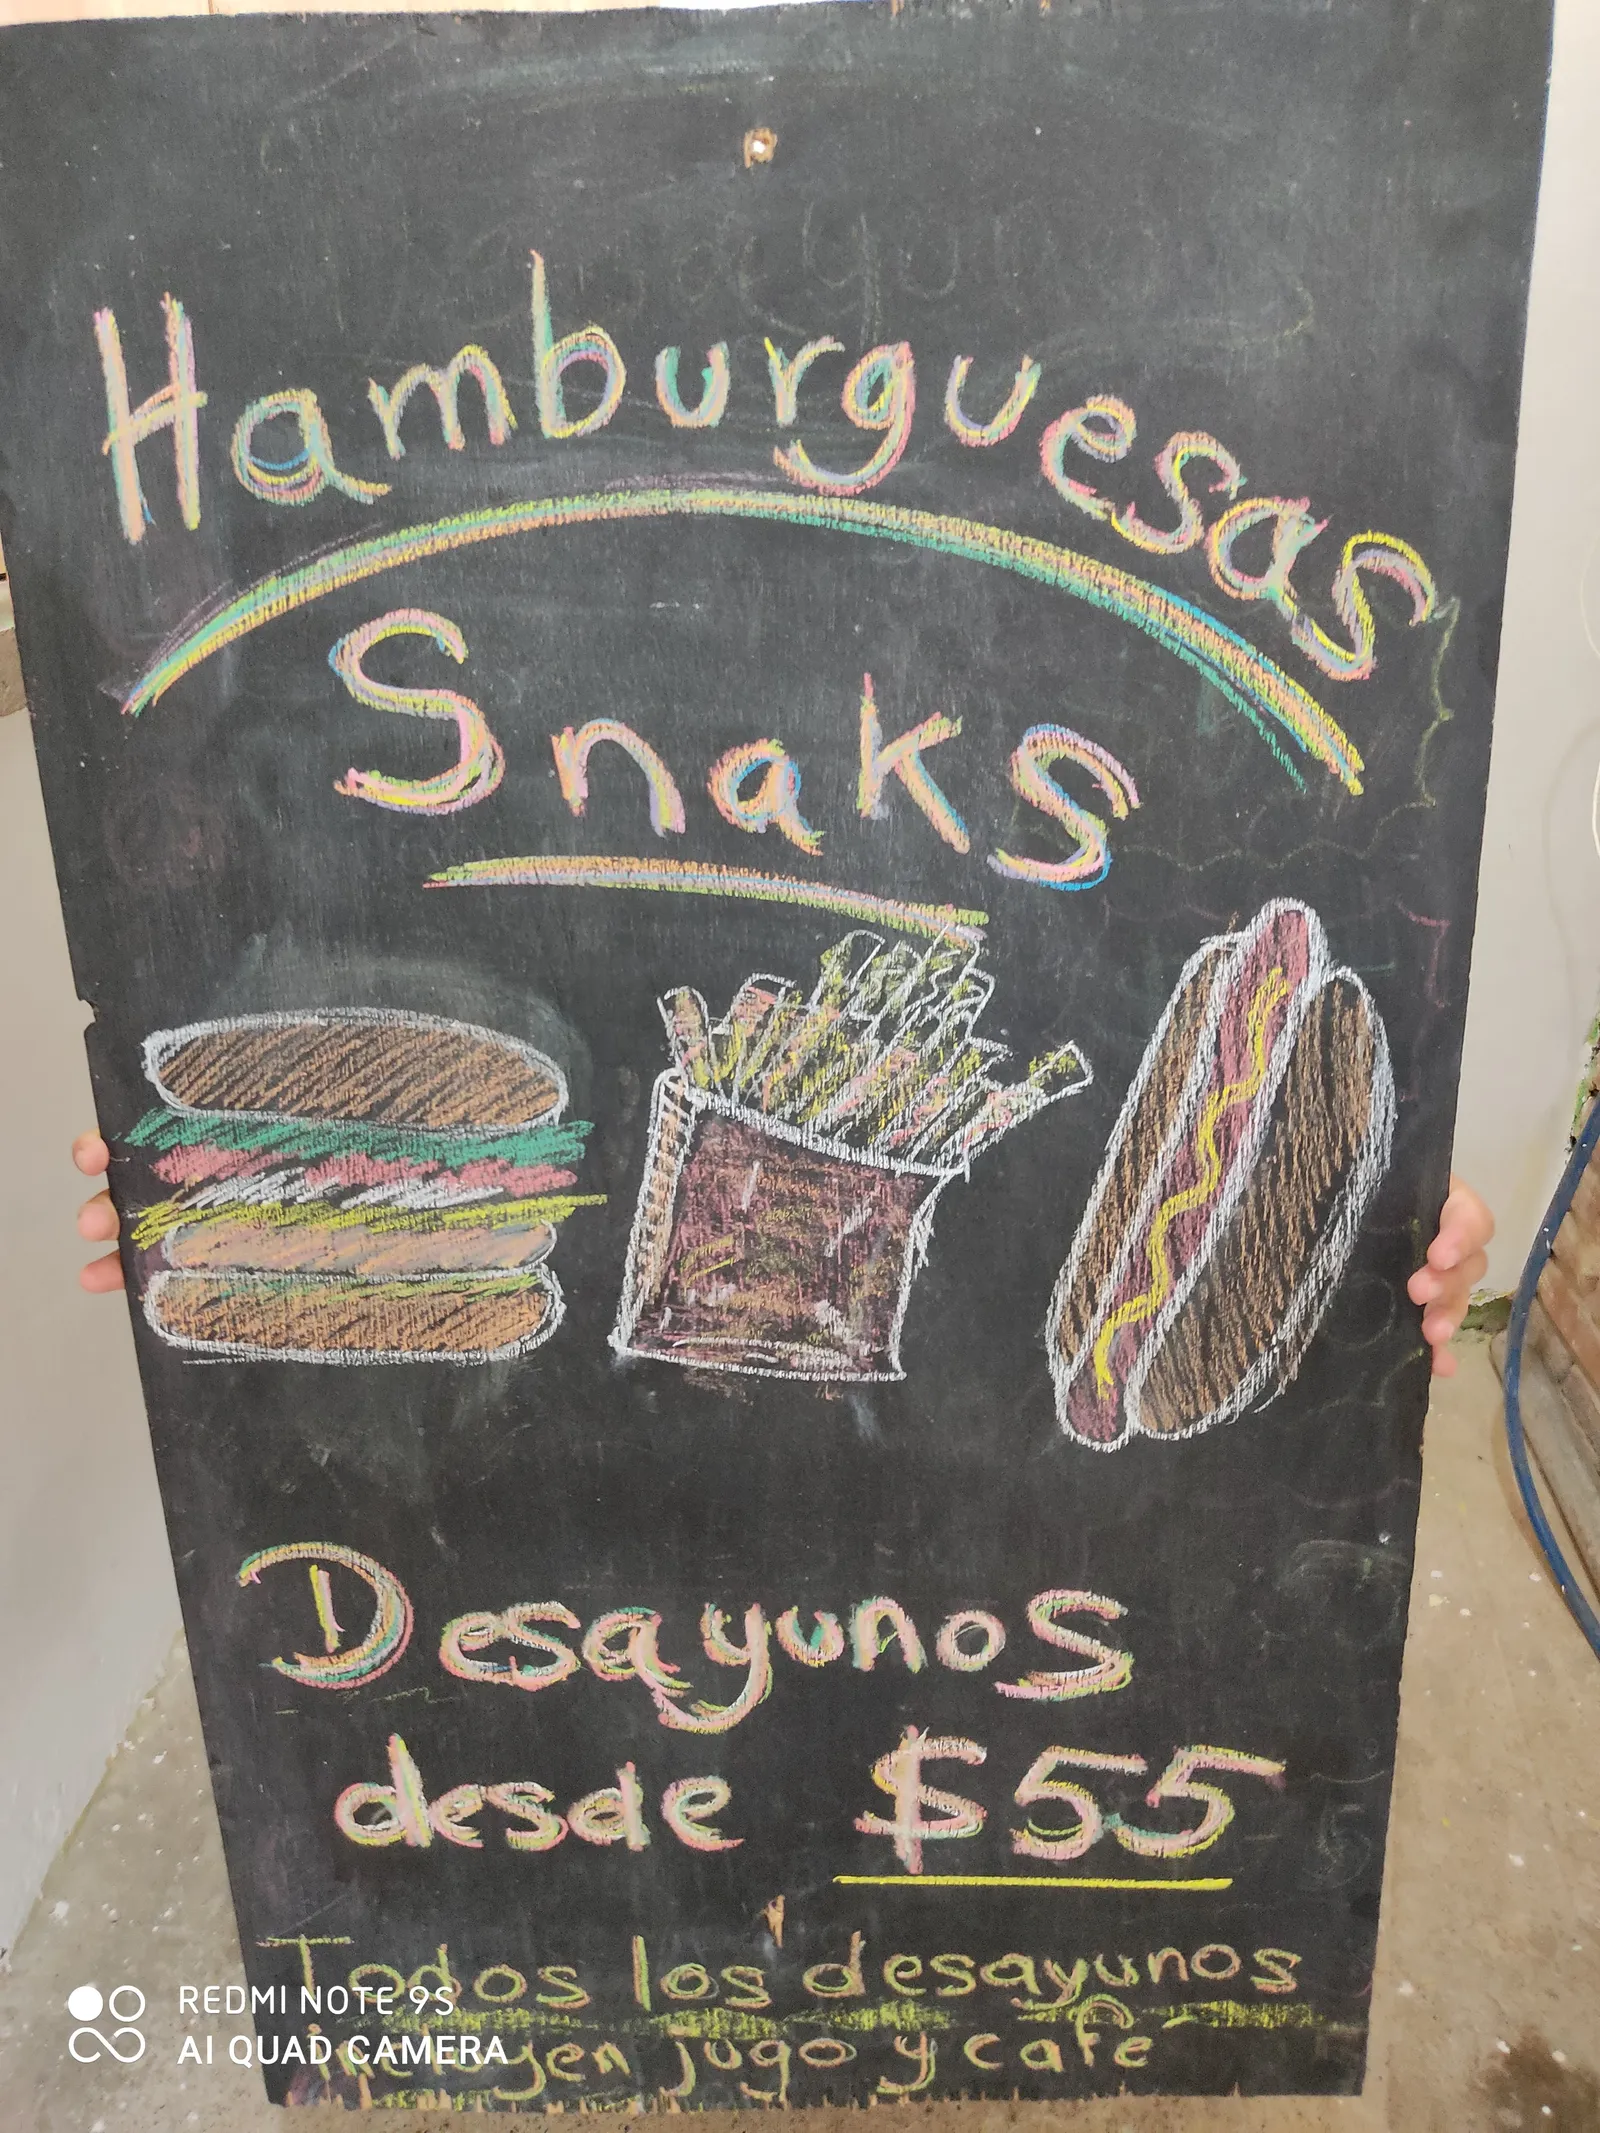 Hamburguesas
Snaks
Desayunos
desde $55
Todos los desayunos
incluyen jugo y café
REDMI NOTE 9S
AI QUAD CAMERA